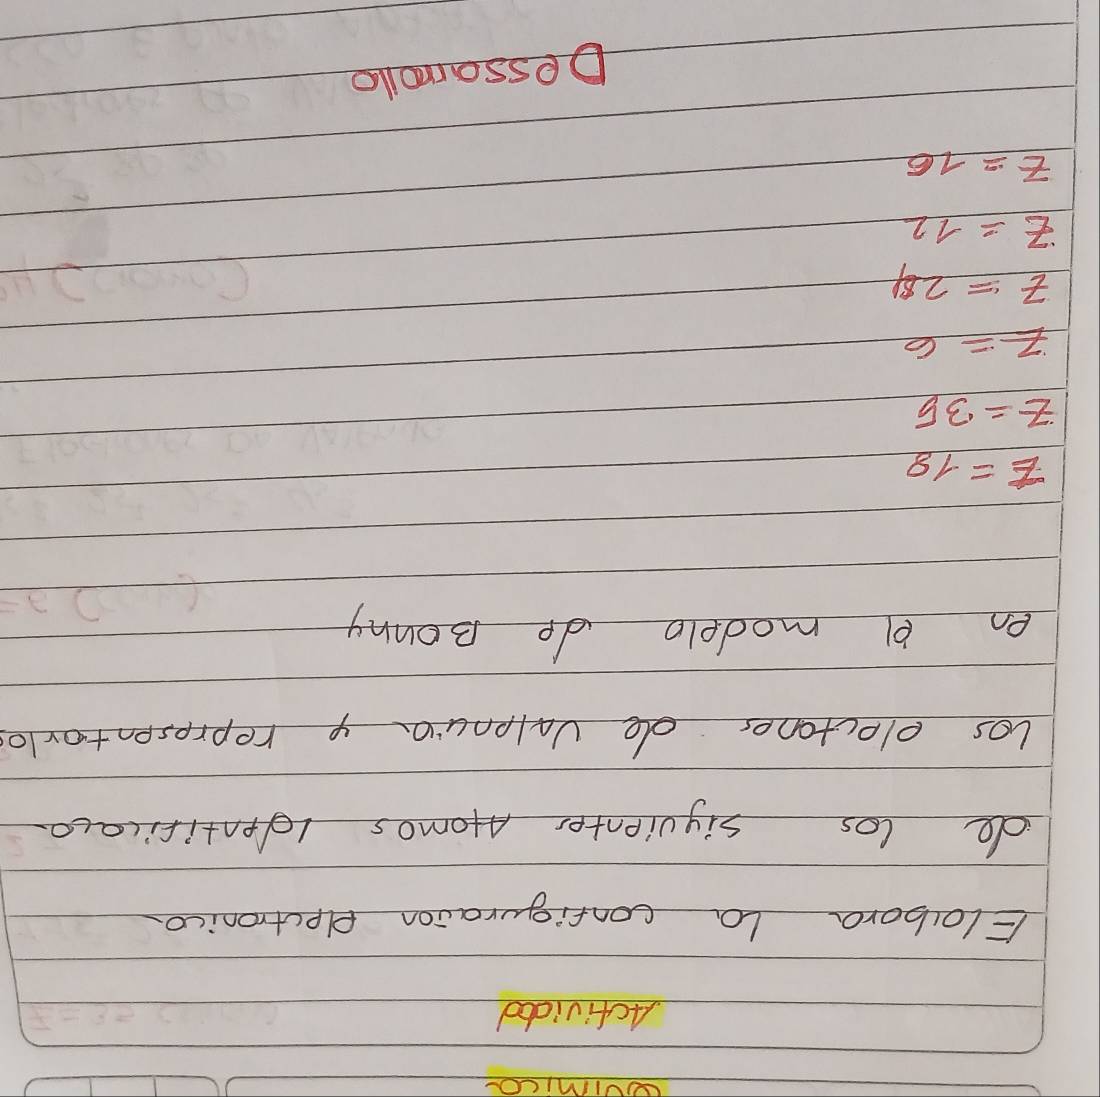 Quimica
Actividad
Elabora La configuracion electronica
de los siguientes Atomos identificaca
Los electones de Valencia y representarlos
en el modelo de Bouny
Z = 18
Z = 35
Z = 6
Z = 24
Z = 12
Z = 16
Dessarrollo